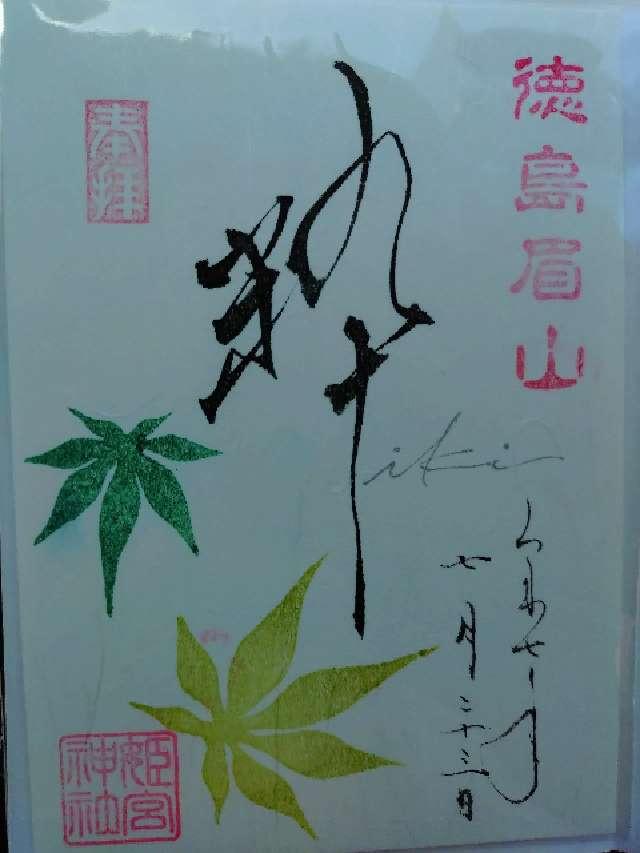 徳島眉山
奉拝
粋
iki
令和七年
七月二十三日
姫宮
神社